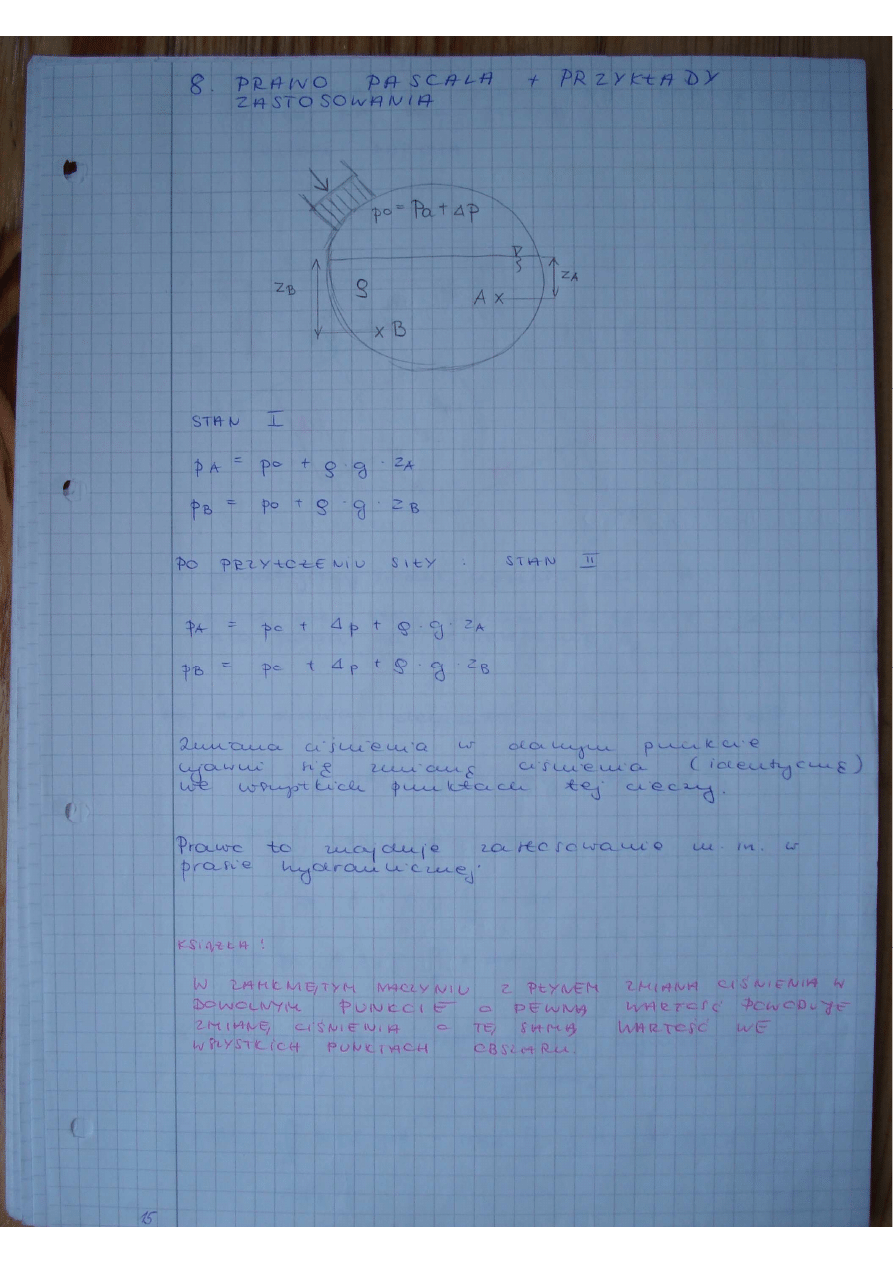 8. PRAWO PASCALA + PRZYKŁADY
ZASTOSOWANIA
po = Pa + ΔP
zB
ρ
A x
zA
x B
STAN I
pA = po + ρ · g · zA
pB = po + ρ · g · zB
PO PRZYŁOŻENIU SIŁY : STAN II
pA = po + Δp + ρ · g · zA
pB = po + Δp + ρ · g · zB
Zmiana ciśnienia w danym punkcie
ujawni się zmianą ciśnienia (identyczną)
we wszystkich punktach tej cieczy.
Prawo to znajduje zastosowanie m. in. w
prasie hydraulicznej.
KSIĄŻKA!
W ZAMKNIĘTYM NACZYNIU Z PŁYNEM ZMIANA CIŚNIENIA W
DOWOLNYM PUNKCIE O PEWNĄ WARTOŚĆ POWODUJE
ZMIANĘ CIŚNIENIA O TĘ SAMĄ WARTOŚĆ WE
WSZYSTKICH PUNKTACH OBSZARU.
15